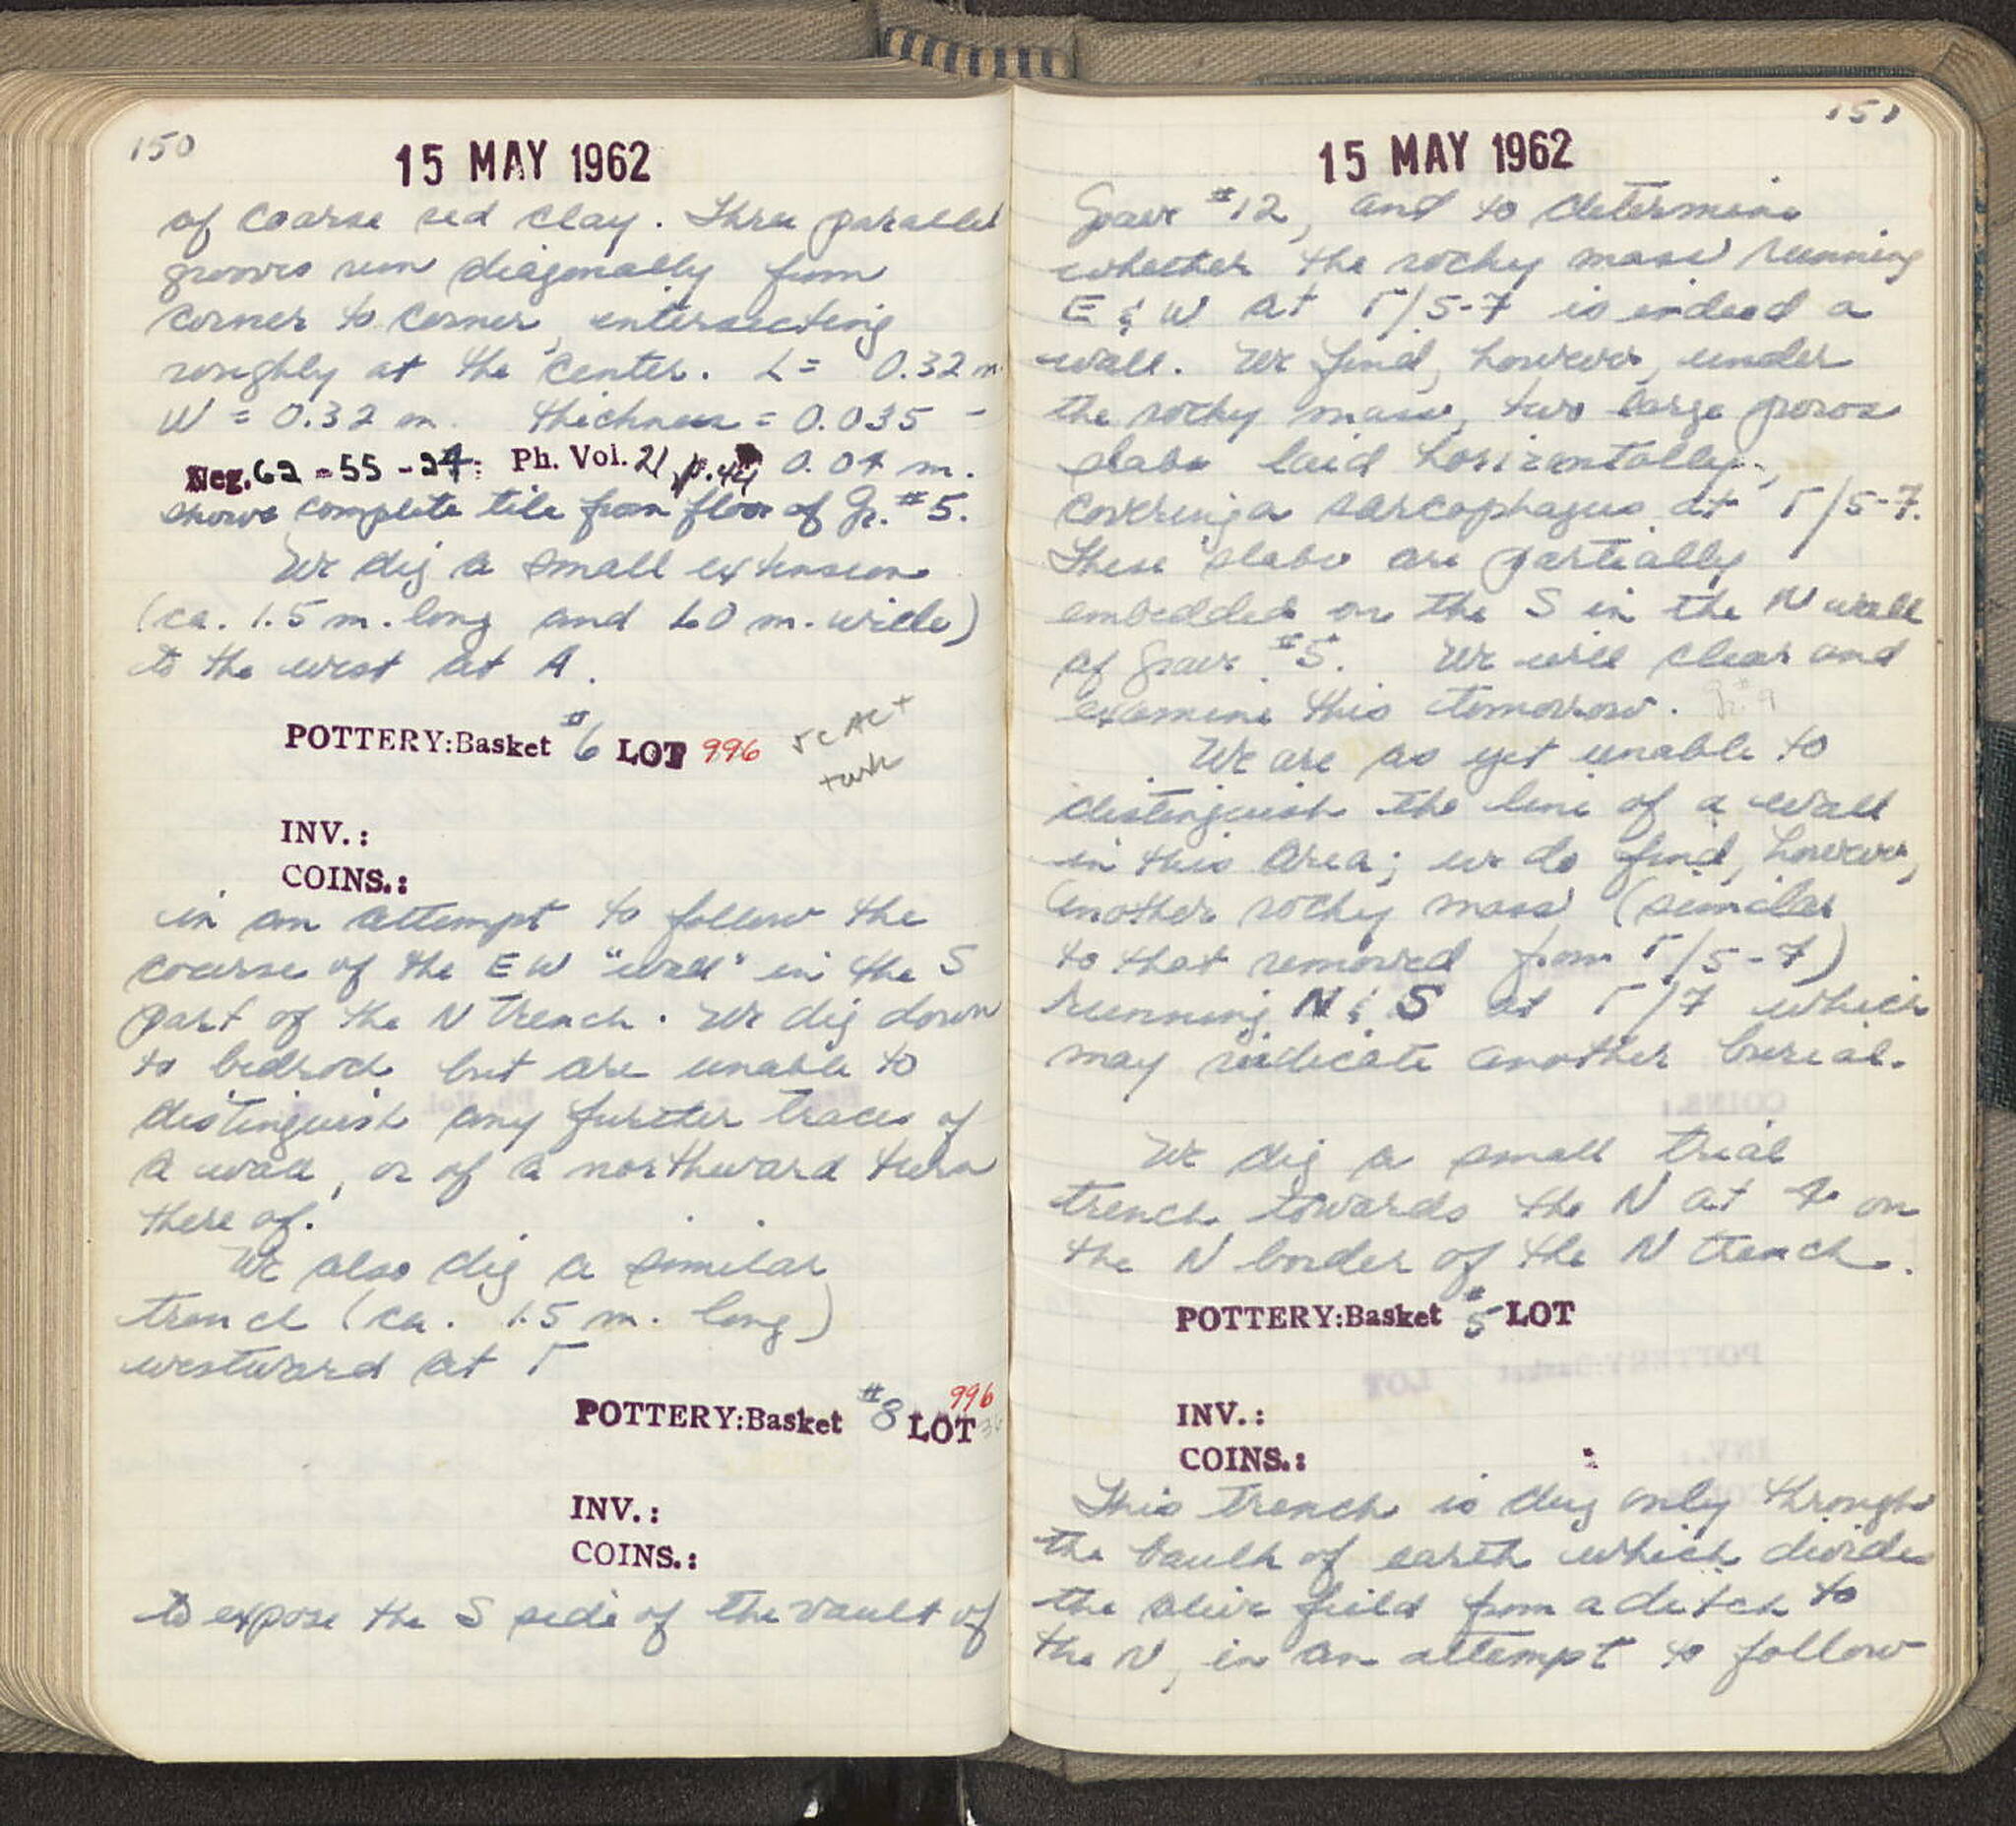 150
15 MAY 1962
of coarse red clay. Three parallel
grooves run diagonally from
corner to corner, intersecting
roughly at the center. L = 0.32 m
W = 0.32 m. thickness = 0.035 -
Neg. 62 - 55 - 24: Ph. Vol. 21, p. 44 0.04 m.
shows complete tile from floor of Gr. #5.
We dig a small extension
(ca. 1.5 m. long and 1.0 m. wide)
to the west at A.
POTTERY:Basket #6 LOT 996
INV.:
COINS.:
in an attempt to follow the
course of the EW "wall" in the S
part of the N Trench. We dig down
to bedrock but are unable to
distinguish any further traces of
a wall, or of a northward turn
there of.
We also dig a similar
trench (ca. 1.5 m. long)
westward at Γ
POTTERY:Basket #8 LOT 996
INV.:
COINS.:
to expose the S side of the vault of
151
15 MAY 1962
Grave #12, and to determine
whether the rocky mass running
E & W at Γ/5-7 is indeed a
wall. We find, however, under
the rocky mass, two large poros
slabs laid horizontally,
covering a sarcophagus at Γ/5-7.
These slabs are partially
embedded on the S in the N wall
of Grave #5. We will clear and
examine this tomorrow.
We are as yet unable to
distinguish the line of a wall
in this area; we do find, however,
another rocky mass (similar
to that removed from Γ/5-7)
running N & S at Γ/7 which
may indicate another burial.
We dig a small trial
trench towards the N at 4 on
the N border of the N trench.
POTTERY:Basket #5 LOT
INV.:
COINS.:
This trench is dug only through
the baulk of earth which divides
the olive field from a ditch to
the N, in an attempt to follow